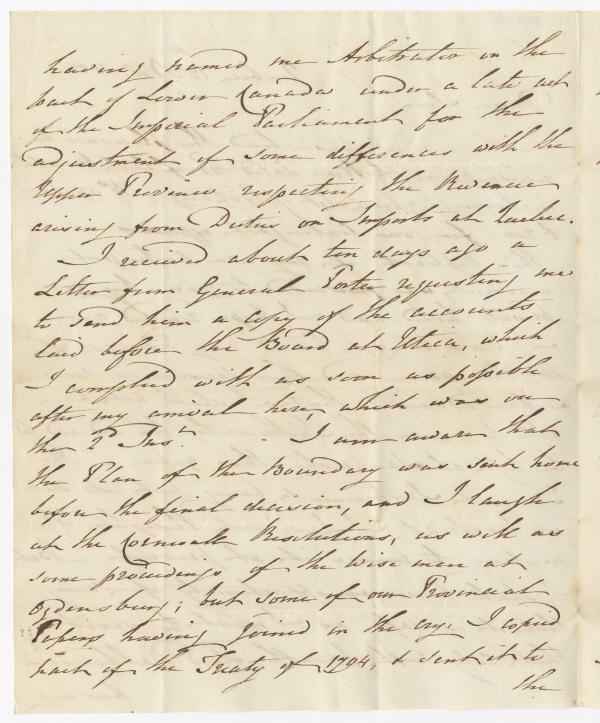 having named me Arbitrator on the
part of Lower Canada under a late act
of the Imperial Parliament for the
adjustment of some differences with the
Upper Province respecting the Revenue
arising from Duties on Imports at Quebec.
I received about ten days ago a
Letter from General Porter requesting me
to send him a copy of the accounts
laid before the Board at Utica, which
I complied with as soon as possible
after my arrival here, which was on
the 2d Inst. I am aware that
the Plan of the Boundary was sent home
before the final decision, and I laugh
at the Cornwall Resolutions, as well as
some proceedings of the wise men at
Ogdensburg; but some of our Provincial
Papers having joined in the cry, I copied
part of the Treaty of 1794, & sent it to
the